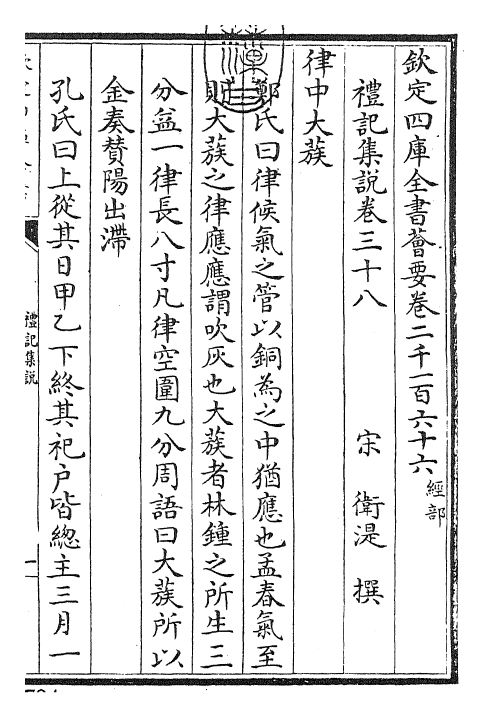 欽定四庫全書薈要卷二千一百六十六 經部
禮記集說卷三十八 宋 衛湜 撰
律中大蔟
鄭氏曰律候氣之管以銅為之中猶應也孟春氣至
則大蔟之律應應謂吹灰也大蔟者林鍾之所生三
分益一律長八寸凡律空圍九分周語曰大蔟所以
金奏賛陽出滯
孔氏曰上從其日甲乙下終其祀户皆總主三月一
禮記集説